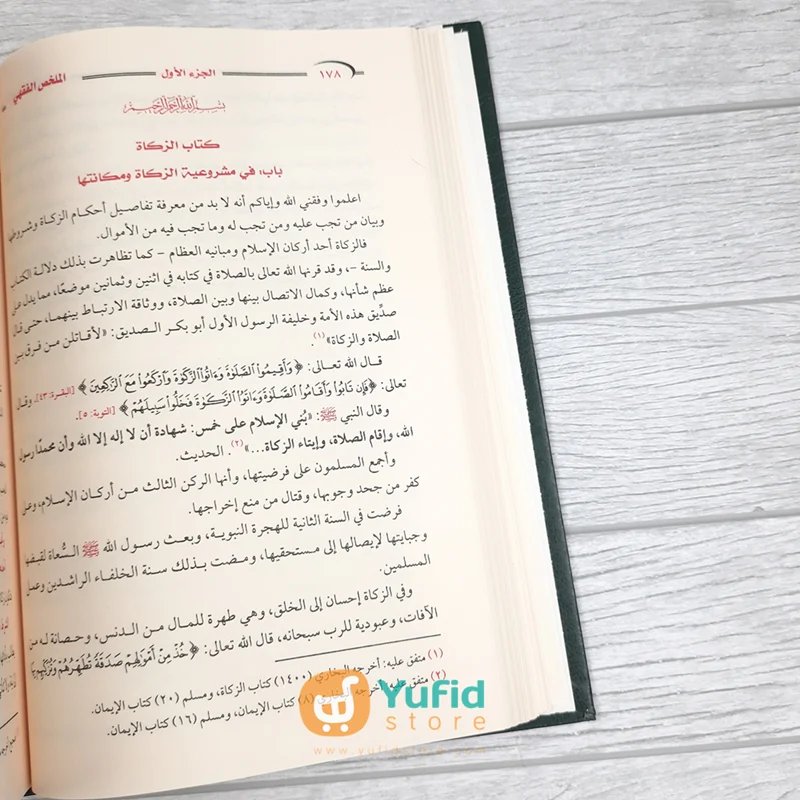 ١٧٨ الجزء الأول الملخص الفقهي
بسم الله الرحمن الرحيم
كتاب الزكاة
باب: في مشروعية الزكاة ومكانتها
اعلموا وفقني الله وإياكم أنه لا بد من معرفة تفاصيل أحكام الزكاة وشروطها
وبيان من تجب عليه ومن تجب له وما تجب فيه من الأموال.
فالزكاة أحد أركان الإسلام ومبانيه العظام – كما تظاهرت بذلك دلالة الكتاب
والسنة –، وقد قرنها الله تعالى بالصلاة في كتابه في اثنين وثمانين موضعًا، مما يدل على
عظم شأنها، وكمال الاتصال بينها وبين الصلاة، ووثاقة الارتباط بينهما، حتى قال
صدِّيق هذه الأمة وخليفة الرسول الأول أبو بكر الصديق: «لأقاتلن من فرق بين
الصلاة والزكاة»(١).
قال الله تعالى: ﴿وَأَقِيمُوا۟ ٱلصَّلَوٰةَ وَءَاتُوا۟ ٱلزَّكَوٰةَ وَٱرْكَعُوا۟ مَعَ ٱلرَّٰكِعِينَ﴾ [البقرة: ٤٣]، وقال
تعالى: ﴿فَإِن تَابُوا۟ وَأَقَامُوا۟ ٱلصَّلَوٰةَ وَءَاتَوُا۟ ٱلزَّكَوٰةَ فَخَلُّوا۟ سَبِيلَهُمْ﴾ [التوبة: ٥].
وقال النبي ﷺ: «بُني الإسلام على خمس: شهادة أن لا إله إلا الله وأن محمدًا رسول
الله، وإقام الصلاة، وإيتاء الزكاة...»(٢). الحديث.
وأجمع المسلمون على فرضيتها، وأنها الركن الثالث من أركان الإسلام، وعلى
كفر من جحد وجوبها، وقتال من منع إخراجها.
فرضت في السنة الثانية للهجرة النبوية، وبعث رسول الله ﷺ السُّعاة لقبضها
وجبايتها لإيصالها إلى مستحقيها، ومضت بذلك سنة الخلفاء الراشدين وعمل
المسلمين.
وفي الزكاة إحسان إلى الخلق، وهي طهرة للمال من الدنس، وحصانة له من
الآفات، وعبودية للرب سبحانه، قال الله تعالى: ﴿خُذْ مِنْ أَمْوَٰلِهِمْ صَدَقَةً تُطَهِّرُهُمْ وَتُزَكِّيهِم بِهَا
(١) متفق عليه: أخرجه البخاري (١٤٠٠) كتاب الزكاة، ومسلم (٢٠) كتاب الإيمان.
(٢) متفق عليه: أخرجه البخاري (٨) كتاب الإيمان، ومسلم (١٦) كتاب الإيمان.
Yufid
store
www.yufidstore.com